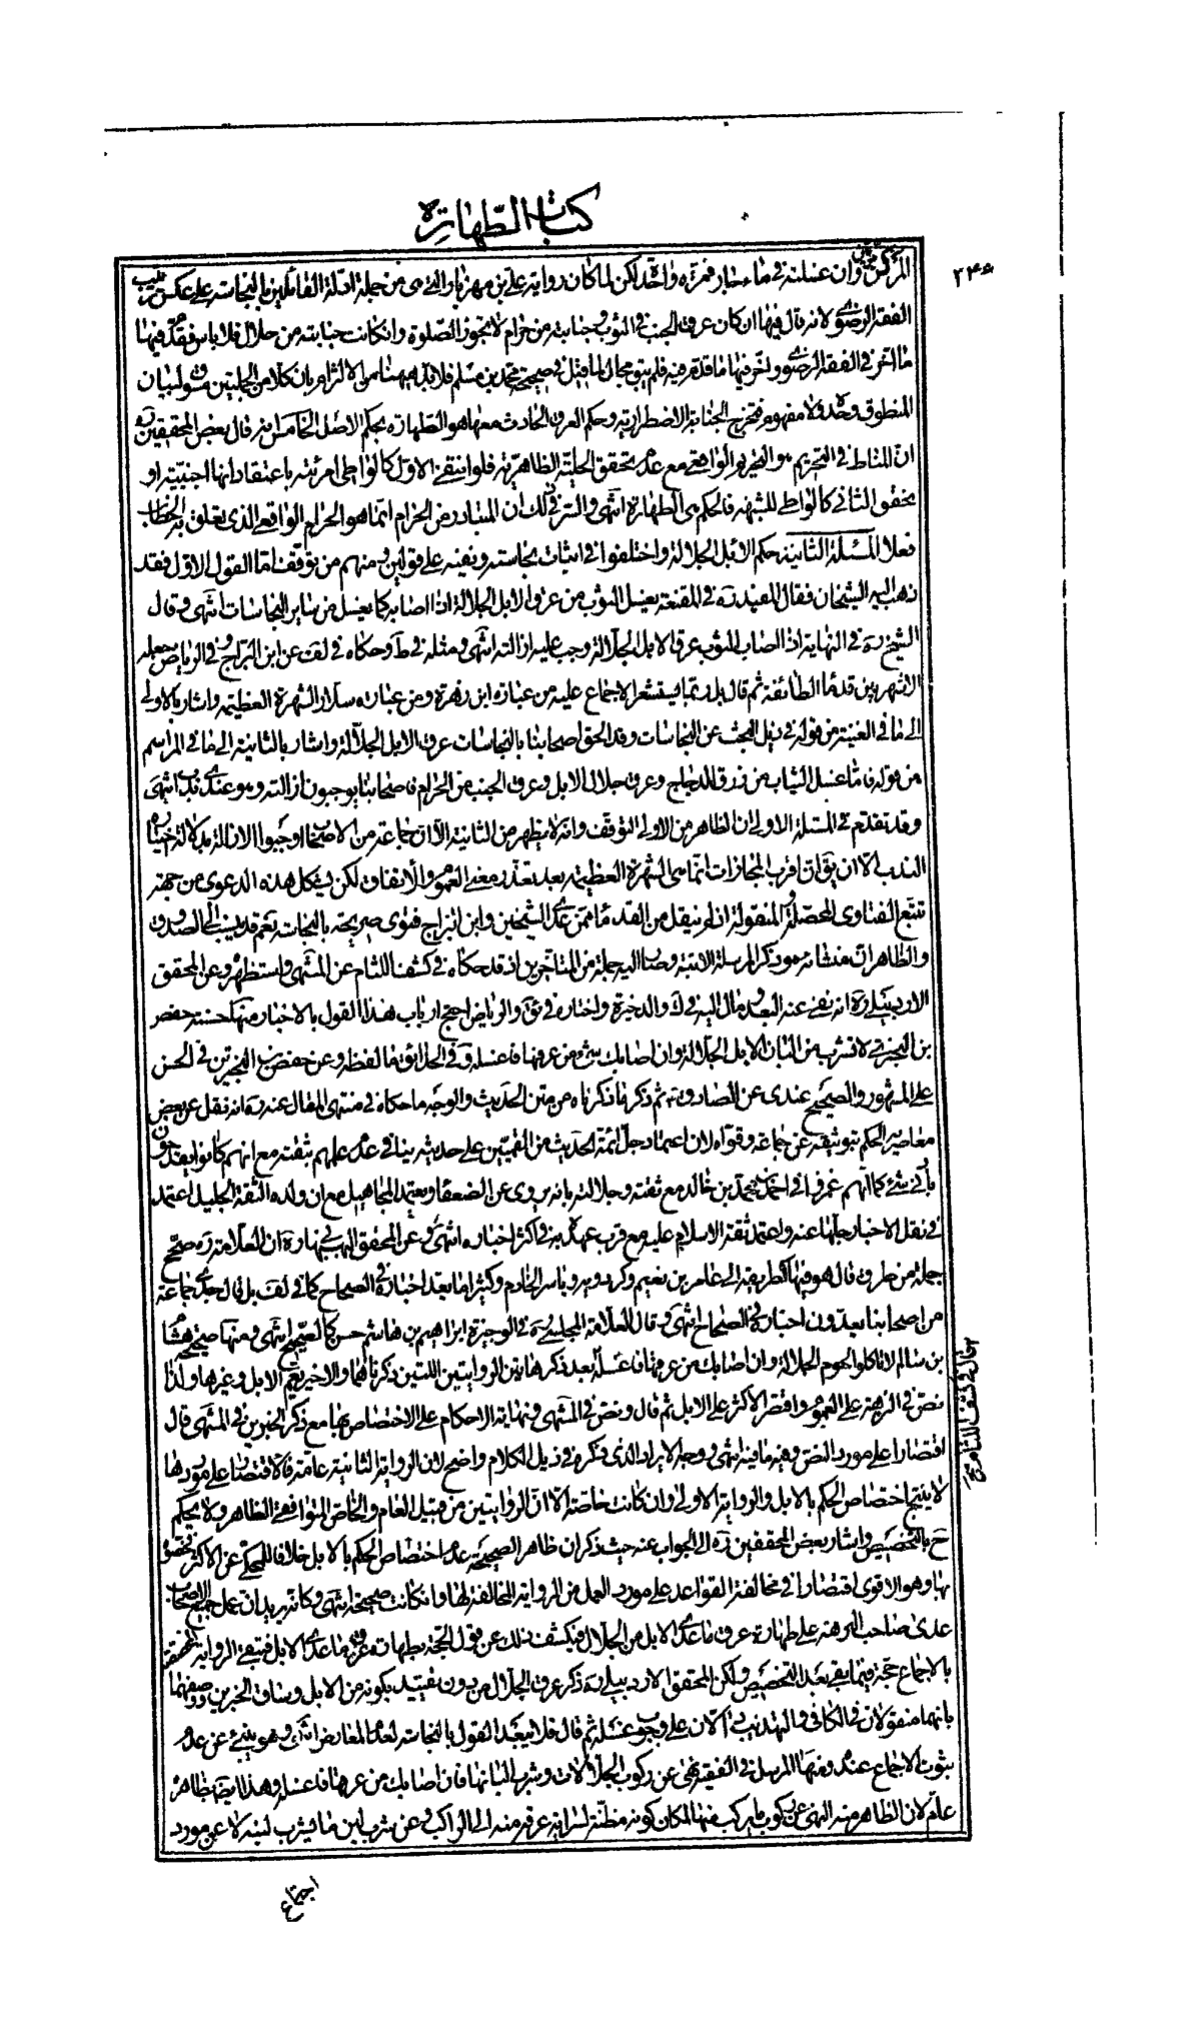 كتاب الطهارة
٢٤٦
المركن مرتين وان غسلته في ماء جار فمرة واحدة لكن لما كان رواية علي بن مهزيار التي هي من جملة ادلة القائلين بالنجاسة على عكس ترتيب
الفقه الرضوي لانه قال فيها ان كان عرق الجنب في الثوب وجنابته من حرام لا يجوز الصلوة وان كانت جنابته من حلال فلا باس فقدم فيها
ما اخر في الفقه الرضوي واخر فيها ما قدم فيه فلم يبق مجال لما قيل في صحيحة محمد بن مسلم فلا بد هيهنا من الالتزام بان كلا من الجملتين مسوق لبيان
المنطوق وحده ولا مفهوم فتخرج الجنابة الاضطرارية وحكم العرق الحادث معها هو الطهارة بحكم الاصل الخامس انه قال بعض المحققين ره
ان المناط في التحريم هو التحريم الواقعي مع عدم تحقق الحلية الظاهرية فلو انتفى الاول كالواطى امرئته باعتقاد انها اجنبية او
تحقق الثاني كالواطى للشبهة فالحكم هي الطهارة انتهى والسر في ذلك ان المتبادر من الحرام انما هو الحرام الواقعي الذي يتعلق به الخطاب
فعلا المسئلة الثانية حكم الابل الجلالة واختلفوا في اثبات نجاسته ونفيه على قولين ومنهم من توقف اما القول الاول فقد
ذهب اليه الشيخان فقال المفيد ره في المقنعة يغسل الثوب من عرق الابل الجلالة اذا اصابه كما يغسل من ساير النجاسات انتهى وقال
الشيخ ره في النهاية اذا اصاب الثوب عرق الابل الجلالة وجب عليه ازالته انتهى ومثله في ط وحكاه في لف عن ابن البراج وفي الرياض جعله
الاشهر بين قدماء الطائفة ثم قال بل ربما يستشعر الاجماع عليه من عبارة ابن زهرة ومن عبارة سلار الشهرة العظيمة واشار بالاولى
الى ما في الغنية من قوله في ذيل البحث عن النجاسات وقد الحق اصحابنا بالنجاسات عرق الابل الجلالة واشار بالثانية الى ما في المراسم
من قوله فاما غسل الثياب من زرق الدجاج وعرق جلال الابل وعرق الجنب من الحرام فاصحابنا يوجبون ازالته وهو عندي ندب انتهى
وقد تقدم في المسئلة الاولى ان الظاهر من الاولى التوقف وانه لا يظهر من الثانية الا ان جماعة من الاصحاب اوجبوا الازالة بدلالة اختياره
الندب الا ان يق ان اقرب المجازات انما هي الشهرة العظيمة بعد تعذر معنى العموم والاتفاق لكن يشكل هذه الدعوى من جهة
تتبع الفتاوى المحصلة والمنقولة اذ لم ينقل من القدماء ممن عدى الشيخين وابن البراج فتوى صريحة بالنجاسة نعم قد ينسب الى الصدوق
والظاهر ان منشائه هو ذكر المرسلة الاتية وصار اليه جملة من المتأخرين اذ قد حكاه في كشف اللثام عن المنتهى واستظهره وعن المحقق
الاردبيلي ره انه نفى عنه البعد ومال اليه في ك والذخيرة واختاره في ئق والرياض احتج ارباب هذا القول بالاخبار منها حسنة حفص
بن البختري لا تشرب من البان الابل الجلالة وان اصابك شيء من عرقها فاغسله وفي الحدائق ما لفظه وعن حفص بن البختري في الحسن
على المشهور والصحيح عندي عن الصادق ع ثم ذكر ما ذكرناه من متن الحديث والوجه ما حكاه في منتهى المقال عنه ره انه نقل عن بعض
معاصريه الحكم بتوثيقه عن جماعة وقواه لان اعتماد جل ائمة الحديث من القميين على حديثه ينافي عدم علمهم بثقته مع انهم كانوا يقدحون
بادنى شئ كما انهم غمزوا في احمد بن محمد بن خالد مع ثقته وجلالته بانه يروي عن الضعفا ويعتمد المجاهيل مع ان ولده الثقة الجليل اعتمد
في نقل الاخبار جلها عنه واعتمد ثقة الاسلام عليه مع قرب عهده به في اكثر اخباره انتهى وعن المحقق البهبهاني ره ان العلامة ره صحح
جملة من طرق قال هو فيها كطريقه الى عامر بن نعيم وكردويه وياسر الخادم وكثيرا ما يعد اخباره في الصحاح كما في لف بل قال جدي جماعة
من اصحابنا يعدون اخباره في الصحاح انتهى وقال العلامة المجلسي ره في الوجيزة ابراهيم بن هاشم حسن كالصحيح انتهى ومنها صحيحة هشام
بن سالم لا تاكلوا لحوم الجلالة وان اصابك من عرقها فاغسله بعد ذكر هاتين الروايتين اللتين ذكرناهما والاخير يعم الابل وغيرها ولذا
نص في النزهة على العموم واقتصر الاكثر على الابل ثم قال ونص في المنتهى ونهاية الاحكام على الاختصاص بها مع ذكر الخبرين في المنتهى قال
اقتصارا على مورد النص وفيه ما فيه انتهى ووجه الايراد الذي ذكره في ذيل الكلام واضح لان الرواية الثانية عامة فالاقتصار على موردها
لا ينتج اختصاص الحكم بالابل والرواية الاولى وان كانت خاصة الا ان الروايتين من قبيل العام والخاص المتوافقي الظاهر ولا يحكم
ح بالتخصيص واشار بعض المحققين ره الى الجواب عنه حيث ذكر ان ظاهر الصحيحة عدم اختصاص الحكم بالابل خلافا للمحكي عن الاكثر فخصوه
بها وهو الاقوى اقتصارا في مخالفة القواعد على مورد العمل من الرواية المخالفة لها وان كانت صحيحة انتهى وكانه يريد ان عمل جميع الاصحاب
عدى صاحب النزهة على طهارة عرق ما عدى الابل من الجلال فيكشف ذلك عن قول الحجة بطهارة عرق ما عدى الابل فتبقى الرواية المخصصة
بالاجماع حجة فيما بقي بعد التخصيص ولكن المحقق الاردبيلي ره ذكر عرق الجلال من دون تقييد بكونه من الابل وساق الخبرين ووصفهما
بانهما منقولان في الكافي والتهذيب دالان على وجوب غسله ثم قال فلا يبعد القول بالنجاسة لعدم المعارض انتهى وهو ينبئ عن عدم
ثبوت الاجماع عنده ومنها المرسل في الفقيه نهى عن ركوب الجلالات وشرب البانها فان اصابك من عرقها فاغسله وهذا ايضا ظاهره
عام لان الظاهر منه النهي عن ركوب ما يركب منها لمكان كونه مظنة لسراية عرقه منه الى الراكب وعن شرب لبن ما يشرب لبنه لا عن مورد
قال في كشف اللثام
اجتماع